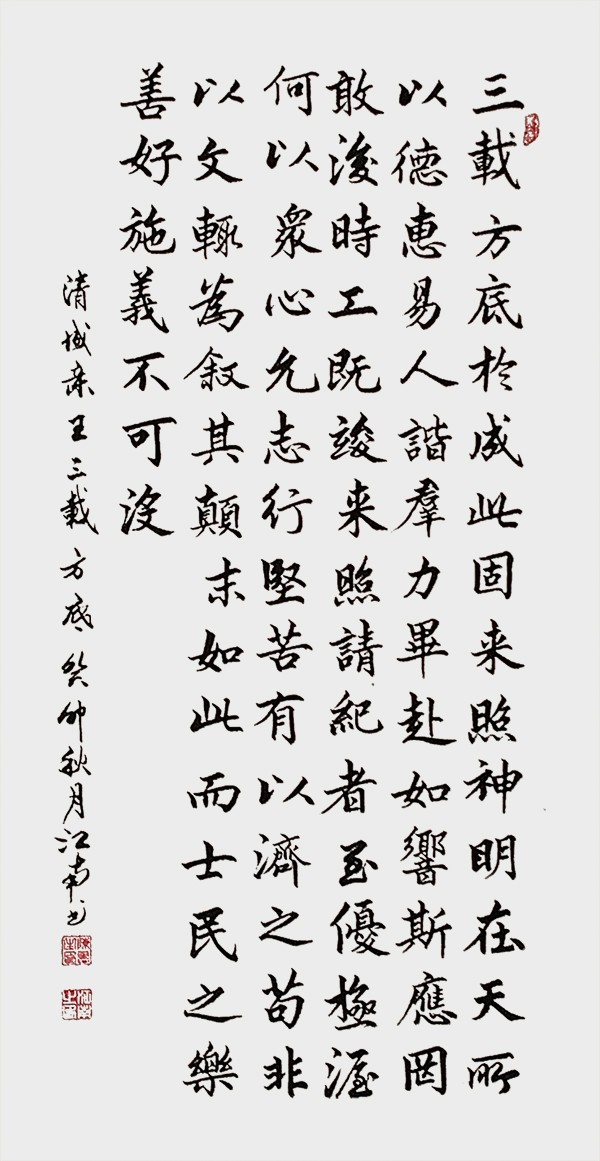 三載方底於成此固来照神明在天所
以德惠易人諧羣力畢赴如響斯應罔
敢後時工既竣来照請紀者至優極渥
何以眾心允志行堅苦有以濟之苟非
以文輒為叙其顛末如此而士民之樂
善好施義不可没
清成亲王三載方底癸卯秋月江南书